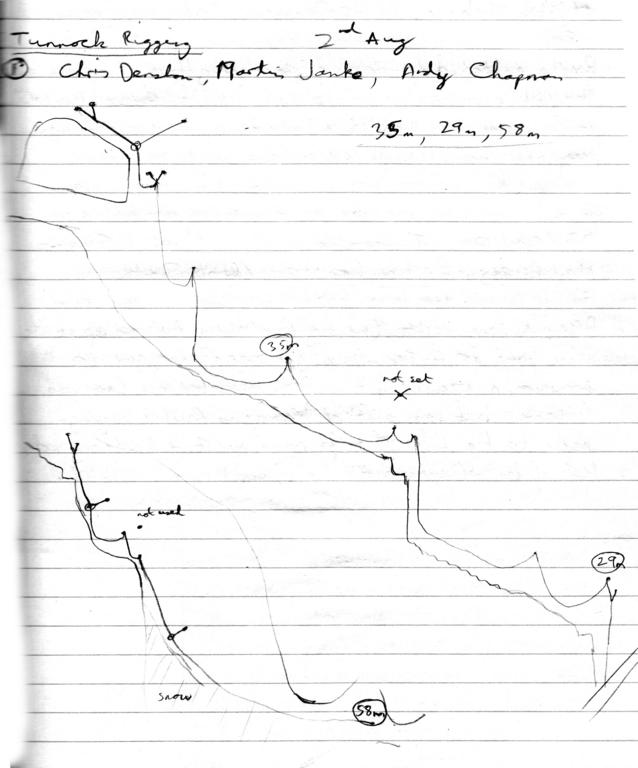 Tunnock Rigging 2nd Aug
① Chris Densham, Martin Janke, Andy Chapman
35m, 29m, 58m
35m
not set
not used
29m
snow
58m